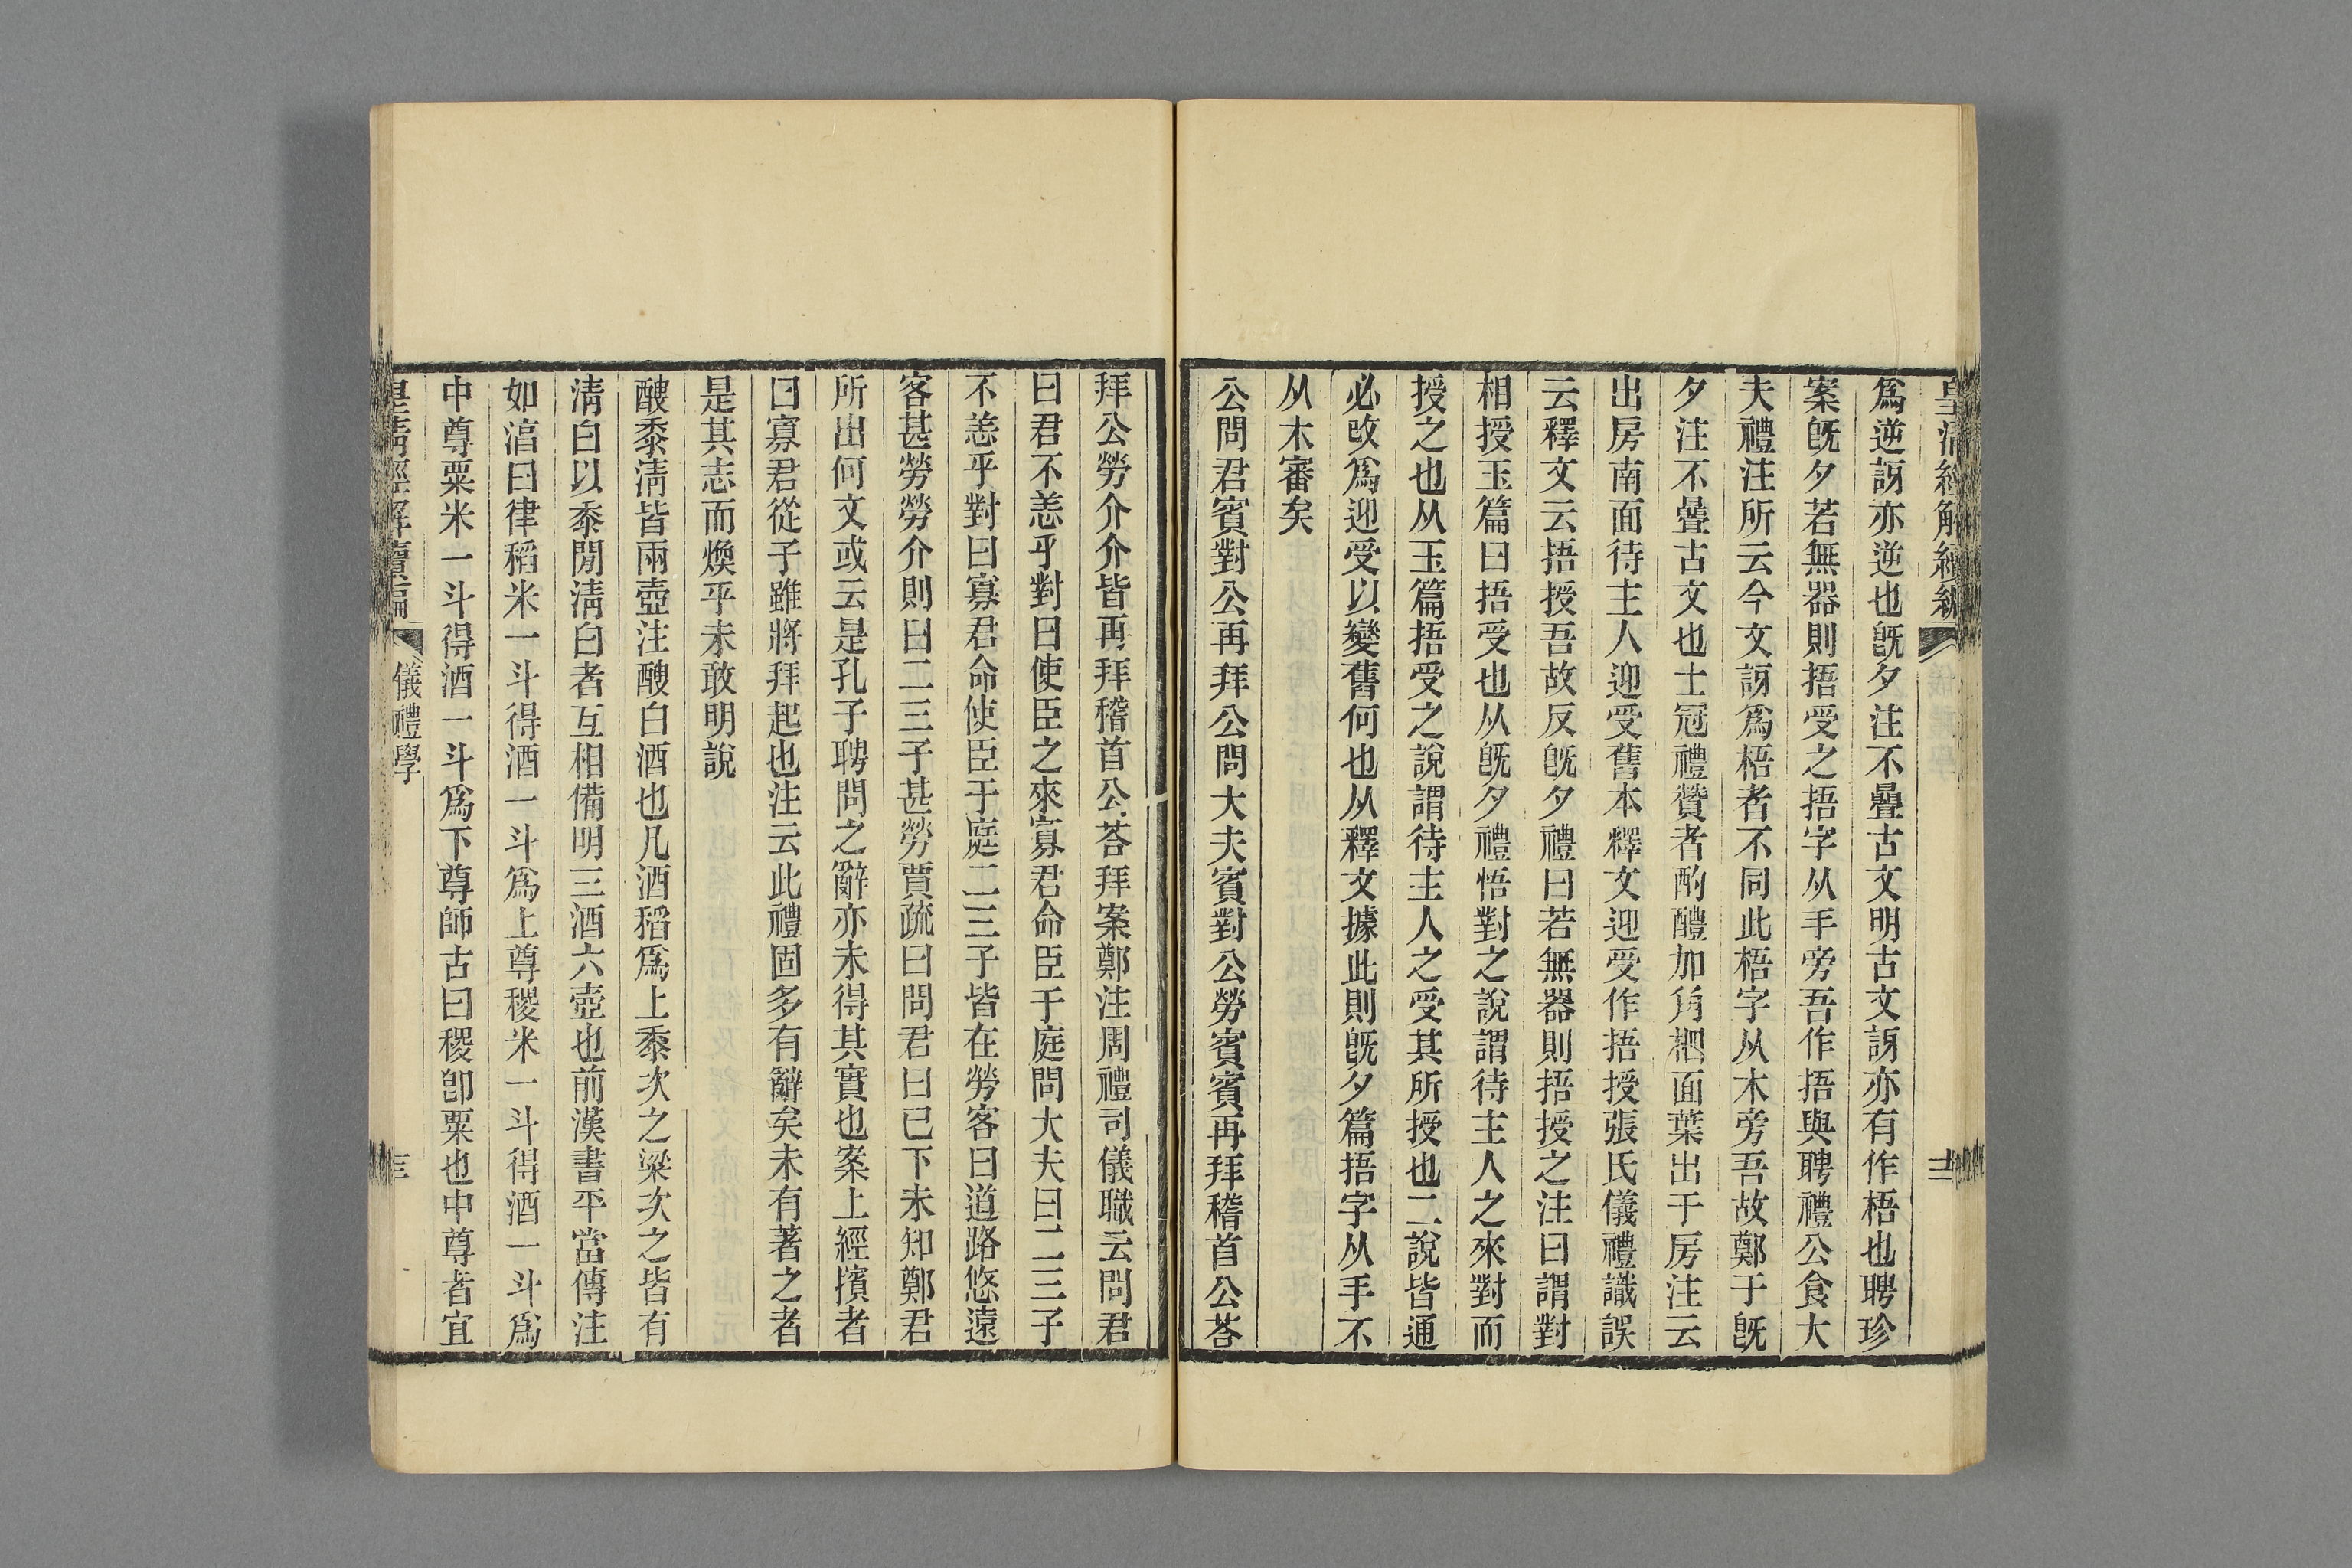 皇清經解續編
十二
爲逆訝亦逆也旣夕注不疊古文明古文訝亦有作梧也聘珍
案旣夕若無器則捂受之捂字从手旁吾作捂與聘禮公食大
夫禮注所云今文訝爲梧者不同此梧字从木旁吾故鄭于旣
夕注不疊古文也士冠禮贊者酌醴加角柶面葉出于房注云
出房南面待主人迎受舊本釋文迎受作捂授張氏儀禮識誤
云釋文云捂授吾故反旣夕禮曰若無器則捂授之注曰謂對
相授玉篇曰捂受也从旣夕禮悟對之說謂待主人之來對而
授之也从玉篇捂受之說謂待主人之受其所授也二說皆通
必攺爲迎受以變舊何也从釋文據此則旣夕篇捂字从手不
从木審矣
公問君賓對公再拜公問大夫賓對公勞賓賓再拜稽首公荅
拜公勞介介皆再拜稽首公荅拜案鄭注周禮司儀職云問君
曰君不恙乎對曰使臣之來寡君命臣于庭問大夫曰二三子
不恙乎對曰寡君命使臣于庭二三子皆在勞客曰道路悠遠
客甚勞勞介則曰二三子甚勞賈疏曰問君曰已下未知鄭君
所出何文或云是孔子聘問之辭亦未得其實也案上經擯者
曰寡君從子雖將拜起也注云此禮固多有辭矣未有著之者
是其志而煥乎未敢明說
醙黍淸皆兩壺注醙白酒也凡酒稻爲上黍次之粱次之皆有
淸白以黍閒淸白者互相備明三酒六壺也前漢書平當傳注
如湻曰律稻米一斗得酒一斗爲上尊稷米一斗得酒一斗爲
中尊粟米一斗得酒一斗爲下尊師古曰稷卽粟也中尊者宜
皇淸經解續編
儀禮學